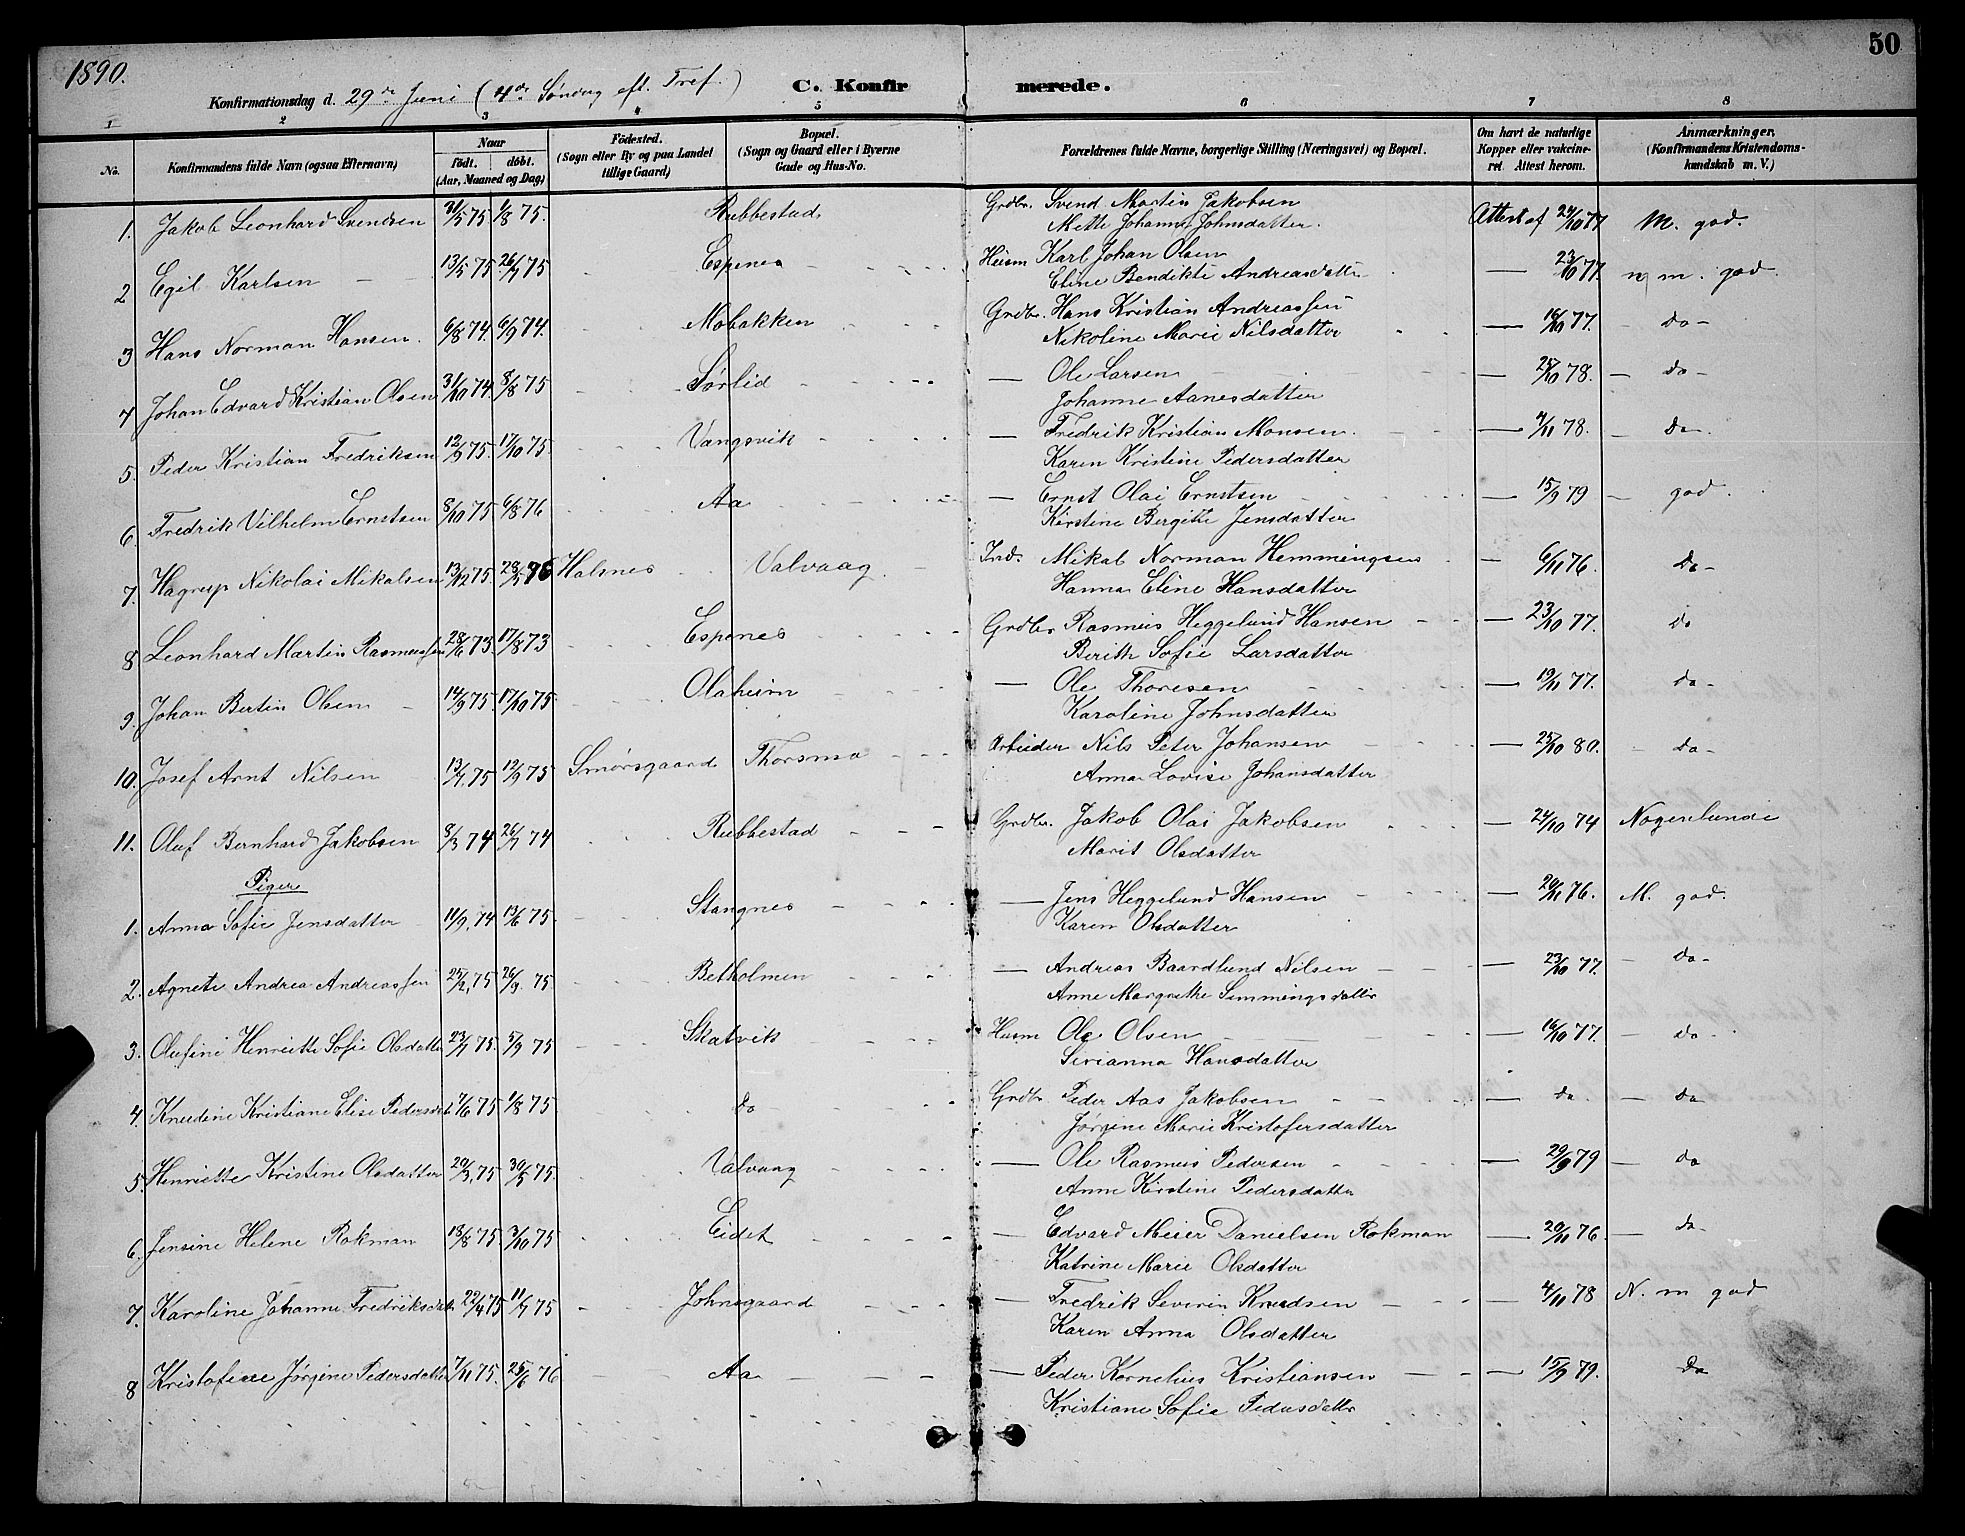 1890.
50
Konfirmationsdag d. 29de Juni (4de Søndag eft. Tref.)
C. Konfirmerede.
1 2 3 4 5 6 7 8
No.
Konfirmandens fulde Navn (ogsaa Efternavn)
Naar
födt. döbt.
(Aar, Maaned og Dag)
Födested.
(Sogn eller By og paa Landet
tillige Gaard)
Bopæl.
(Sogn og Gaard eller i Byerne
Gade og Hus-No.
Forældrenes fulde Navne, borgerlige Stilling (Næringsvei) og Bopæl.
Om havt de naturlige
Kopper eller vakcine-
ret. Attest herom.
Anmærkninger.
(Konfirmandens Kristendoms-
kundskab m. V.)
1. Jakob Leonhard Svendsen 31/5 75 1/8 75. Rubbestad Grdbr. Svend Martin Jakobsen Attest af 24/10 77 M. god.
Mette Johanna Johnsdatter.
2 Egil Karlsen 13/5 75 26/7 75 Espenes Husm Karl Johan Olsen — 23/10 77. n m. god.
Eline Bendikte Andreasdatter
3 Hans Norman Hansen. 6/8 74. 6/9 74. Mobakken Grdbr. Hans Kristian Andreassen — 16/10 77. — do —
Nikoline Marie Nilsdatter
4 Johan Edvard Kristian Olsen 31/10 74 8/8 75 Sørlid — Ole Larsen — 25/10 78. — do —
Johanne Aanesdatter
5. Peder Kristian Fredriksen 12/9 75. 17/10 75. Vangsvik — Fredrik Kristian Monsen. — 4/11 78. — Do.
Karen Kristine Pedersdatter
6. Fredrik Vilhelm Ernstsen 8/10 75 6/8 76 Aa — Ernst Olai Ernstsen — 15/9 79 — god.
Kirstine Bergitte Jensdatter
7. Hagrup Nikolai Mikalsen 13/12 75. 28/5 76 Halsnes Valvaag. Ind. Mikal Norman Hemmingsen — 6/11 76. Do —
Hanna Eline Hansdatter
8 Leonhard Martin Rasmussen 28/6 73. 17/8 73 Espenes Grdbr Rasmus Heggelund Hansen 23/10 77. Do
Berith Sofie Larsdatter
9. Johan Bertin Olsen 14/9 75. 17/10 75 Olaheim — Ole Thoresen — 19/11 77. do —
Karoline Johnsdatter
10. Josef Arnt Nilsen 13/7 75 12/9 75 Smørsgaard Thorsmo Arbeider Nils Peter Johansen — 25/10 80. — da —
Anna Lovise Johansdatter
11. Oluf Bernhard Jakobsen 8/3 74 26/7 74 Rubbestad Grdbr. Jakob Olai Jakobsen — 24/10 74 Nogenlunde
Marit Olsdatter
Piger
1. Anna Sofie Jensdatter 19/9 74 13/6 75 Stangnes — Jens Heggelund Hansen — 20/11 76. M. god.
Karen Olsdatter
2. Agnete Andrea Andreassen 25/2 75 26/9 75 Betholmen — Andreas Baardlund Nilsen — 23/10 77. — Do —
Anne Margrethe Simmingsdatter
3. Olufine Henriette Sofie Olsdatter 23/7 75. 5/9 75 Skatvik Husm Ole Olsen — 16/10 77. — do.
Sirianna Hansdatter
4. Knudine Kristiane Elise Pedersdat 7/6 75 1/8 75 do Grdbr. Peder Aas Jakobsen — do — da
Jørgine Marie Kristofersdatter
5. Henriette Kristine Olsdatter 20/3 75 30/5 75. Valvaag — Ole Rasmus Pedersen — 29/9 79 — da
Anne Kirstine Pedersdatter
6. Jensine Helene Rokman 18/8 75. 3/10 75 Eidet — Edvard Meier Danielsen Rokman — 20/11 76. — da —
Katrine Marie Olsdatter
7. Karoline Johanne Fredriksdat 22/4 75 11/7 75 Johnsgaard — Fredrik Severin Knudsen — 4/11 78 N. m god
Karen Anna Olsdatter
8 Kristofine Jørgine Pedersdatter 7/11 75. 25/6 76 Aa — Peder Kornelius Kristiansen — 15/9 79. Do
Kristiane Sofie Pedersdatter